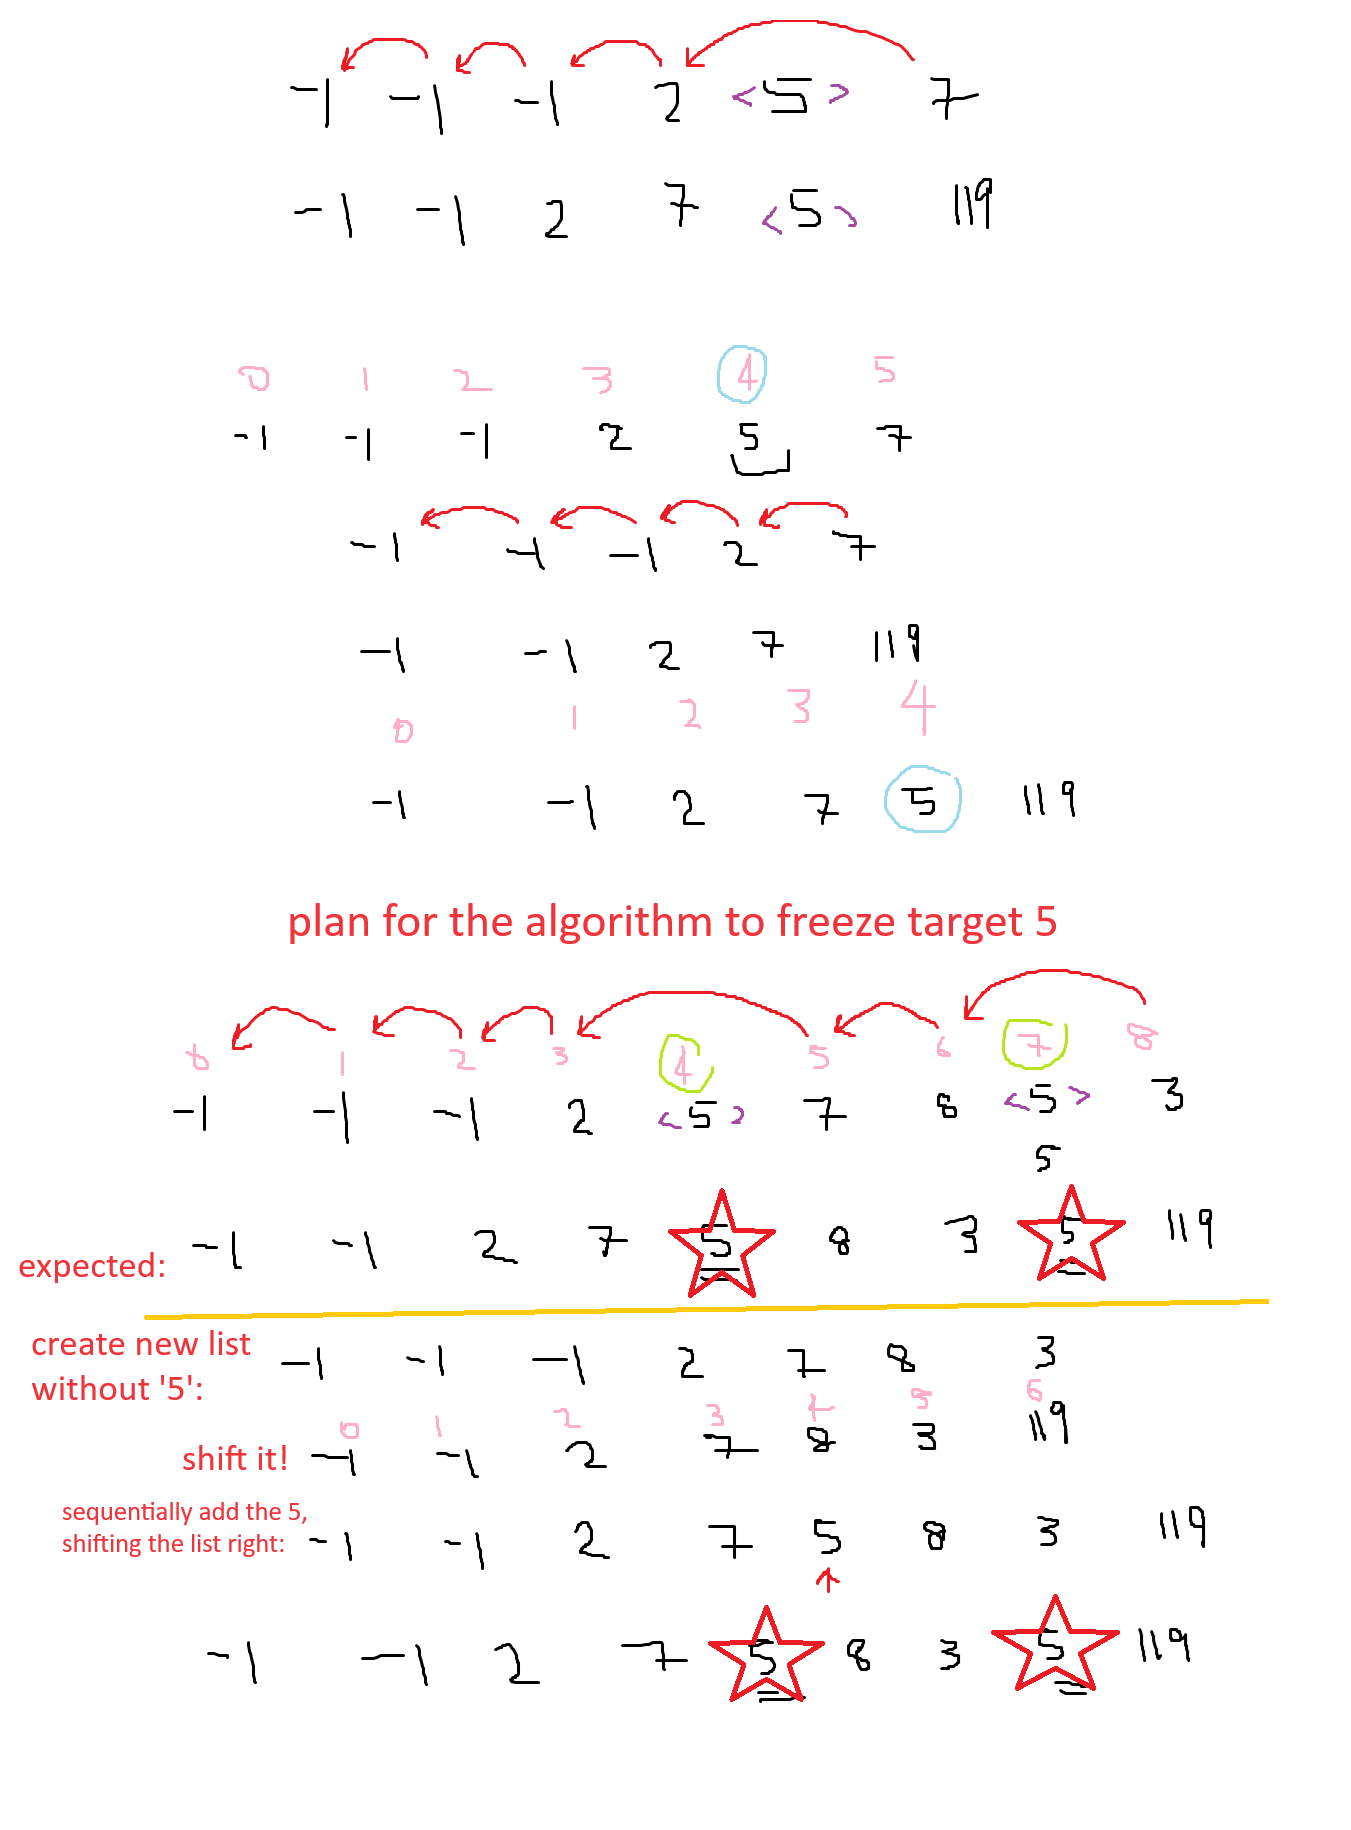 -1 -1 -1 2 <5> 7
-1 -1 2 7 <5> 119
0 1 2 3 4 5
-1 -1 -1 2 5 7
-1 -1 -1 2 7
-1 -1 2 7 119
0 1 2 3 4
-1 -1 2 7 5 119
plan for the algorithm to freeze target 5
0 1 2 3 4 5 6 7 8
-1 -1 -1 2 <5> 7 8 <5> 3
5
expected: -1 -1 2 7 5 8 3 5 119
create new list
without '5': -1 -1 -1 2 7 8 3
0 1 2 3 4 5 6
shift it! -1 -1 2 7 8 3 119
sequentially add the 5,
shifting the list right: -1 -1 2 7 5 8 3 119
-1 -1 2 7 5 8 3 5 119